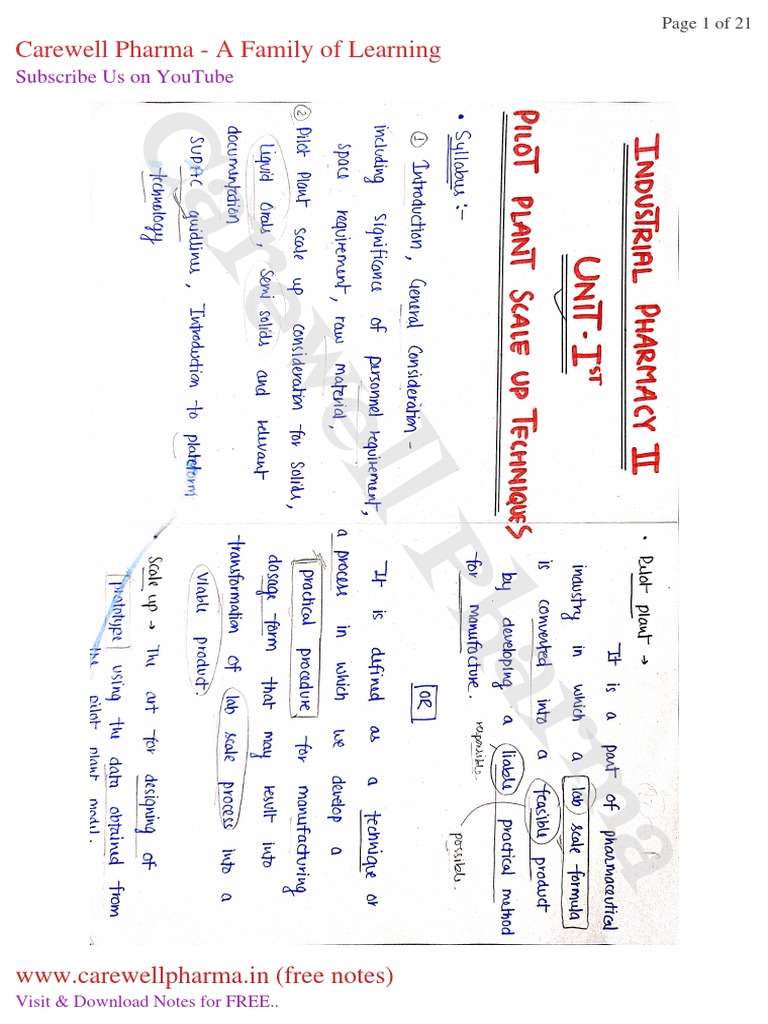 Page 1 of 21
Carewell Pharma - A Family of Learning
Subscribe Us on YouTube
INDUSTRIAL PHARMACY II
UNIT-IST
PILOT PLANT SCALE UP TECHNIQUES
• Syllabus :-
① Introduction, General Consideration -
including significance of personnel requirement,
space requirement, raw material,
② Pilot Plant scale up consideration for solids,
liquid orals, semi solids and relevant
documentation
SUPAC guidlines, Introduction to plateform
technology
• Pilot plant →
It is a part of pharmaceutical
industry in which a lab scale formula
is converted into a feasible product
by developing a liable practical method
for manufacture.
responsible.
possible.
OR
It is defined as a technique or
a process in which we develop a
practical procedure for manufacturing
dosage form that may result into
transformation of lab scale process into a
viable product.
• Scale up → The art for designing of
prototype using the data obtained from
the pilot plant model.
Carewell Pharma
www.carewellpharma.in (free notes)
Visit & Download Notes for FREE..